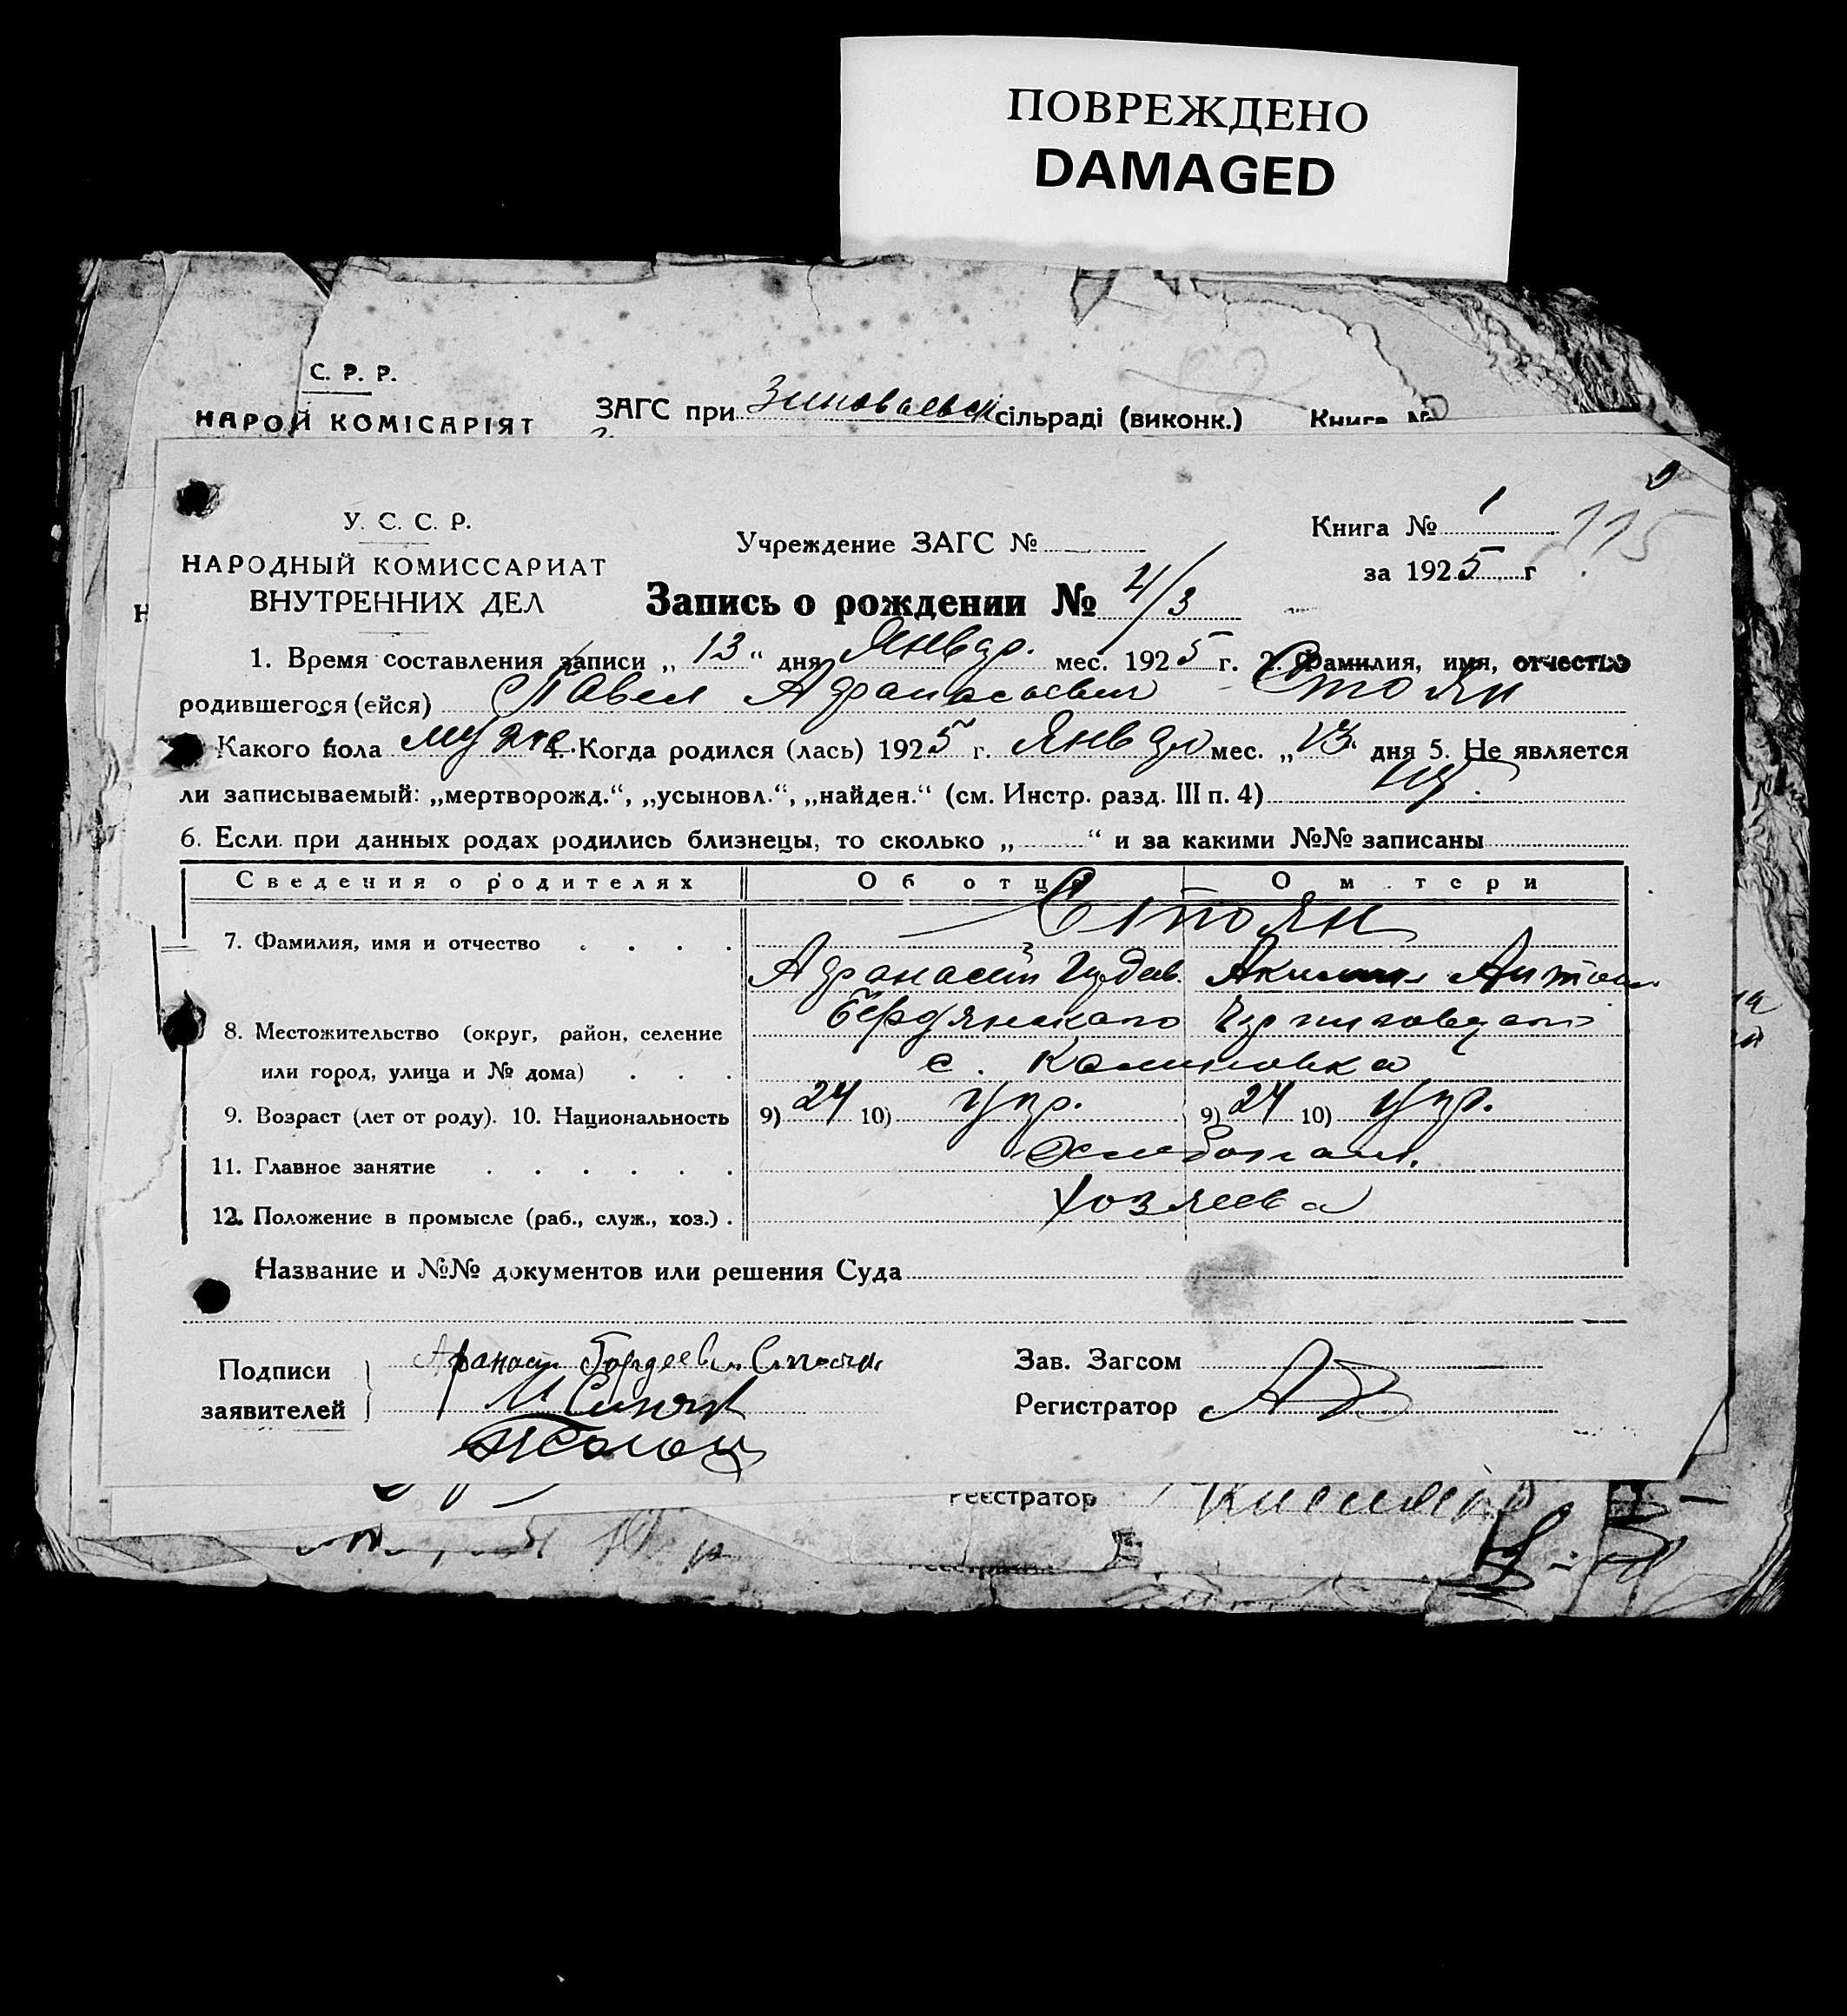 ПОВРЕЖДЕНО
DAMAGED
С. Р. Р.
НАРОЙ КОМІСАРІЯТ
ЗАГС при Зиновьевск сільраді (виконк.) Книга №
У. С. С. Р.
НАРОДНЫЙ КОМИССАРИАТ
ВНУТРЕННИХ ДЕЛ
Учреждение ЗАГС №
Книга № 1 115
за 1925 г
Запись о рождении № 4/3
1. Время составления записи „ 13 “ дня Январ. мес. 1925 г. 2. Фамилия, имя, отчество
родившегося (ейся) Павел Афанасьевич Стоян
Какого пола мужс. 4. Когда родился (лась) 1925 г. Январ мес. „13“ дня 5. Не является
ли записываемый: „мертворожд.“, „усыновл.“, „найден.“ (см. Инстр. разд. III п. 4)
6. Если при данных родах родились близнецы, то сколько „ “ и за какими №№ записаны
Сведения о родителях Об отце О м тери
7. Фамилия, имя и отчество Стоян
Афанасий Акилина Антон
8. Местожительство (округ, район, селение Бердянского Черниговского
или город, улица и № дома) с. Калиновка
9. Возраст (лет от роду). 10. Национальность 9) 24 10) Укр. 9) 24 10) Укр.
11. Главное занятие Хлебопаш.
12. Положение в промысле (раб., служ., хоз.) . Хозяева
Название и №№ документов или решения Суда
Подписи
заявителей
Афанасий Гордеевич Стоян
Зав. Загсом
Регистратор
Реєстратор